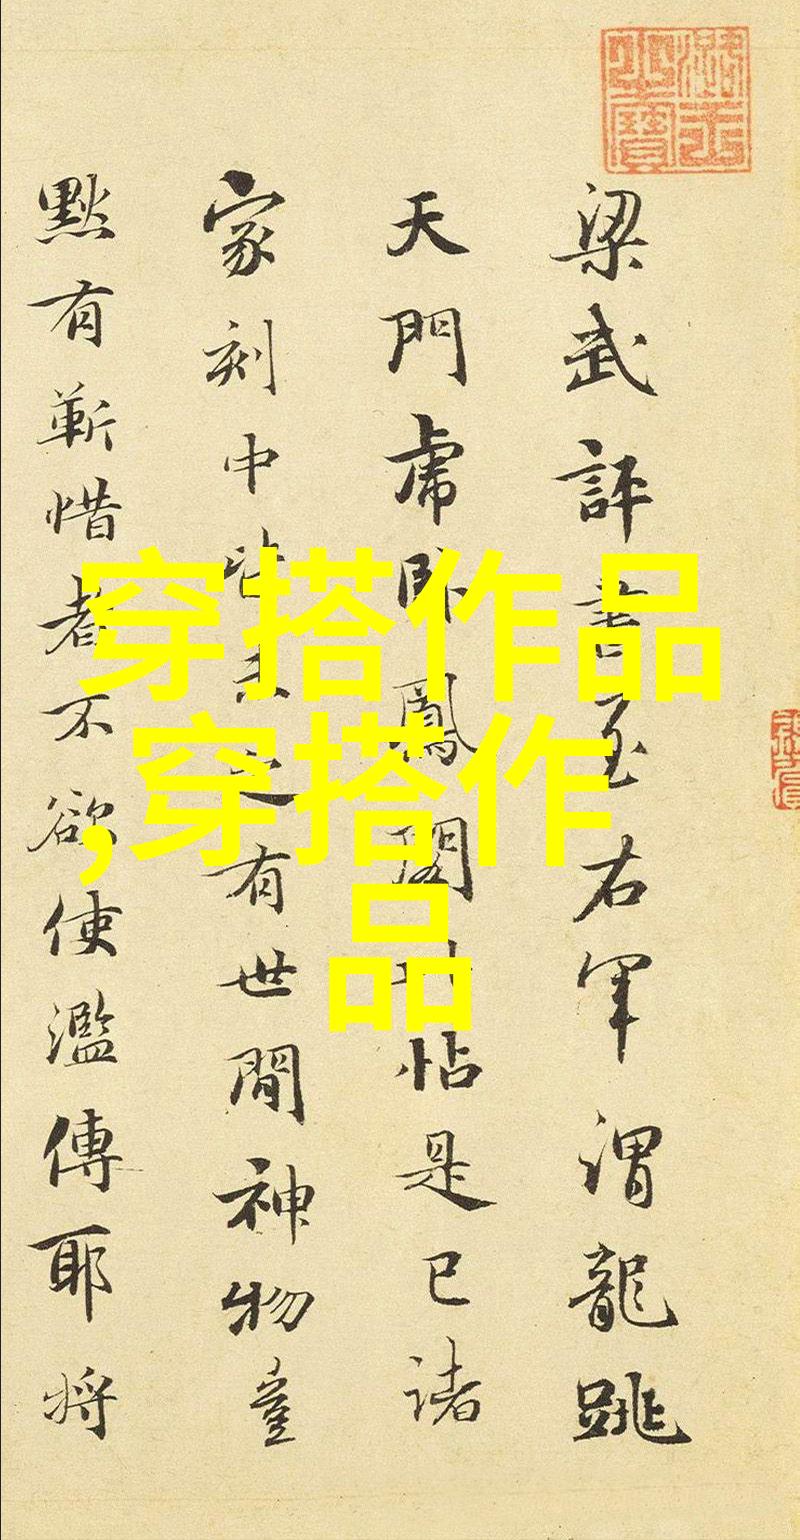 梁武評書至右軍謂龍跳
天門虎卧鳳閣帖是已諸
家刻中皆未之有世間神物豈
黙有靳惜者不欲使濫傳耶將
穿搭作品
,穿搭作
品